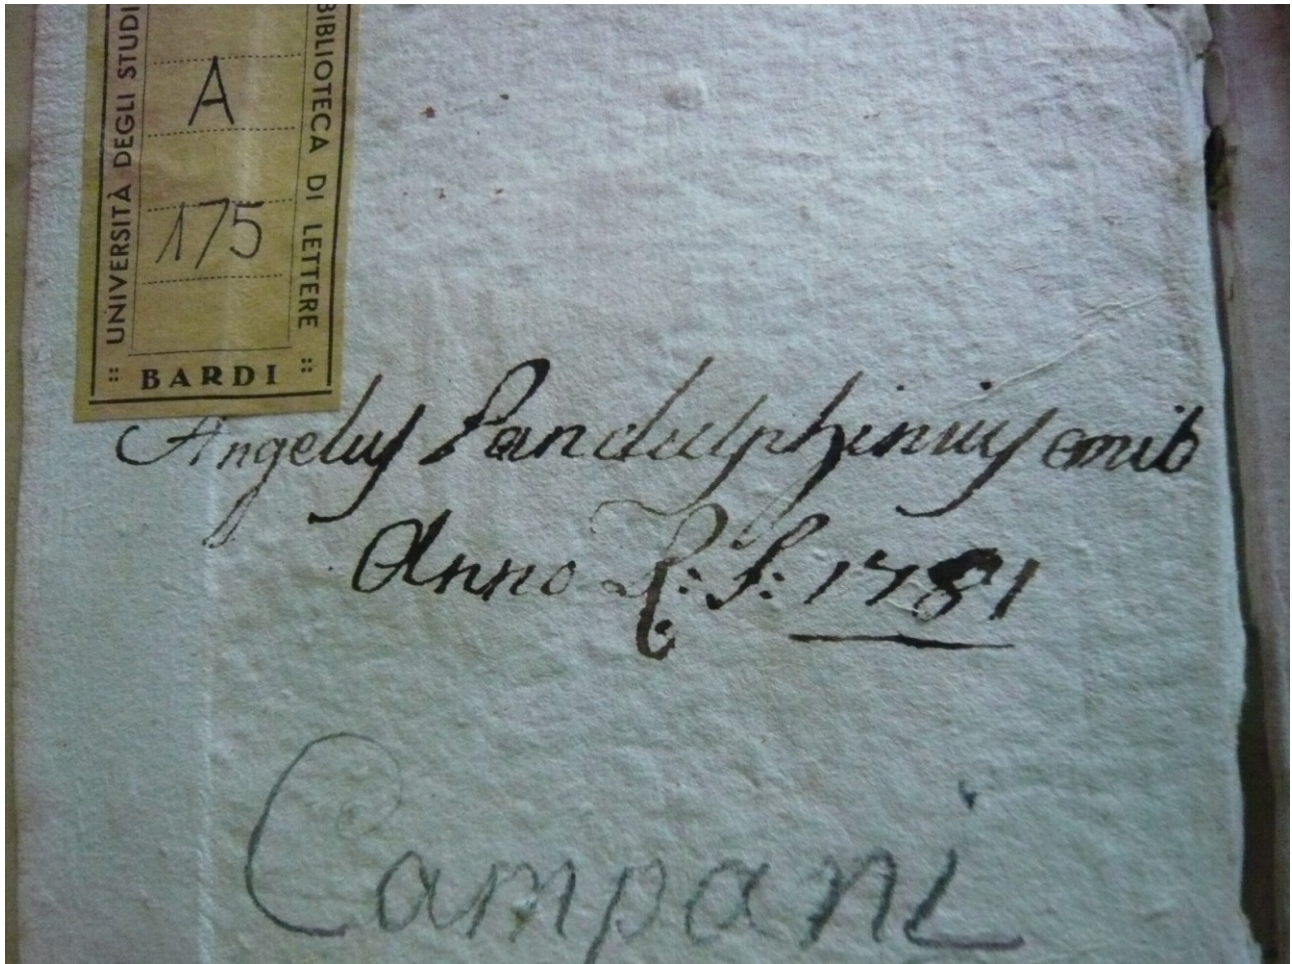 UNIVERSITÀ DEGLI STUDI
BIBLIOTECA DI LETTERE
A
175
BARDI
Angelus Pandulphinius emit
Anno R: S: 1781
Campani